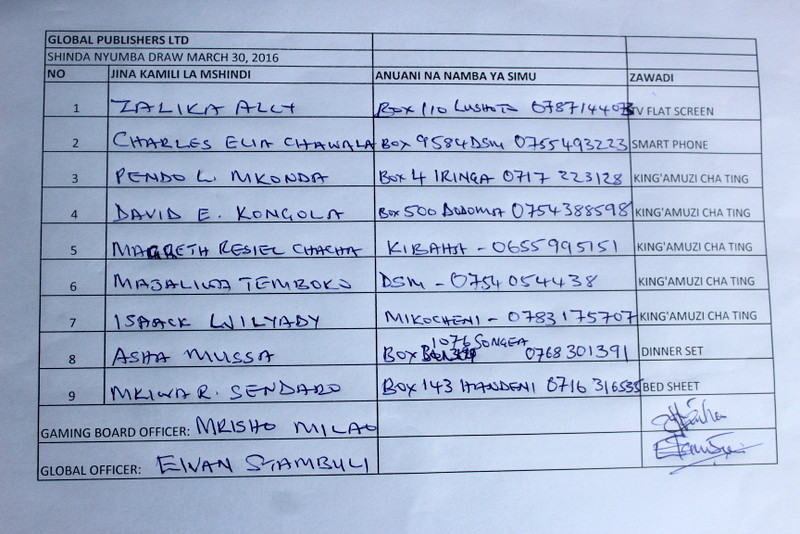 GLOBAL PUBLISHERS LTD
SHINDA NYUMBA DRAW MARCH 30, 2016
NO JINA KAMILI LA MSHINDI ANUANI NA NAMBA YA SIMU ZAWADI
1 ZALIKA ALLY BOX 110 LUSHOTO TV FLAT SCREEN
2 CHARLES ELIA CHAWALA BOX 9584 DSM 0755493223 SMART PHONE
3 PENDO L. MKONDA BOX 4 IRINGA 0717 223128 KING'AMUZI CHA TING
4 DAVID E. KONGOLA BOX 500 DODOMA 0754388598 KING'AMUZI CHA TING
5 MAGRETH RESIEL CHACHA KIBAHA - 0655995151 KING'AMUZI CHA TING
6 MAJALIWA TEMBOKO DSM - 0754 054438 KING'AMUZI CHA TING
7 ISAACK WILYADY MIKOCHENI - 0783175707 KING'AMUZI CHA TING
8 ASHA MUSSA BOX 1076 SONGEA 0768301391 DINNER SET
9 MKIWA R. SENDARO BOX 143 HANDENI 0716 316535 BED SHEET
GAMING BOARD OFFICER: MRISHO MILAO
GLOBAL OFFICER: ELVAN STAMBULI